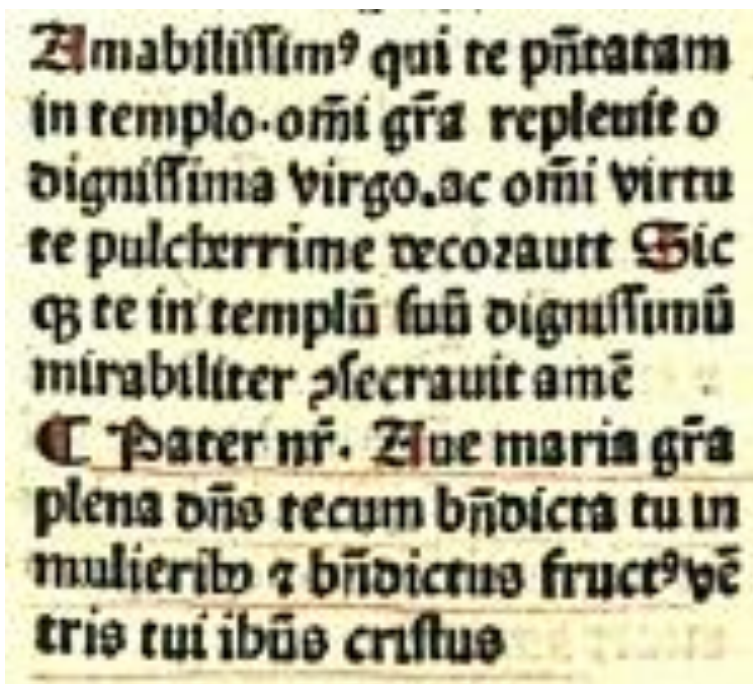 Amabilissimꝰ qui te pn̄tatam
in templo·om̄i gr̄a repleuit o
dignissima virgo.ac om̄i virtu
te pulcherrime decorauit Sic
qꝫ te in templū suū dignissimū
mirabiliter ꝯsecrauit amē
¶ Pater nr̄. Aue maria gr̄a
plena dn̄s tecum bn̄dicta tu in
mulieribꝰ ⁊ bn̄dictus fructꝰ vē
tris tui ihūs cristus